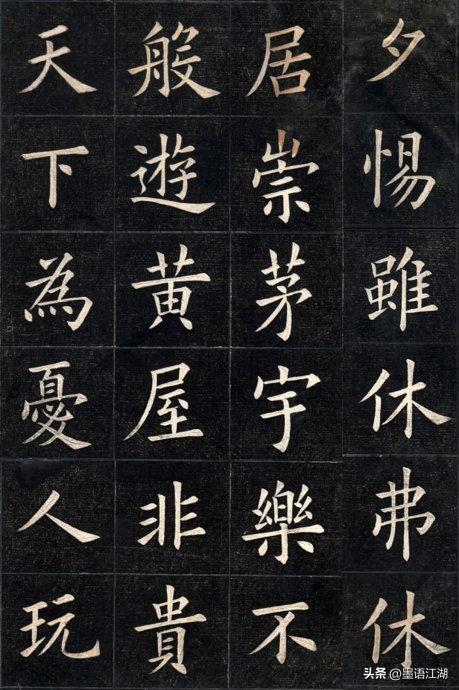 夕惕雖休弗休
居崇茅宇樂不
般遊黃屋非貴
天下為憂人玩
头条 @墨语江湖